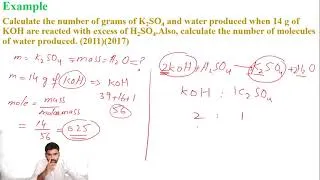 Example
Calculate the number of grams of K₂SO₄ and water produced when 14 g of
KOH are reacted with excess of H₂SO₄.Also, calculate the number of molecules
of water produced. (2011)(2017)
m = K₂SO₄ = mass = H₂O = ?
m = 14 g of KOH ⇒ KOH
39+16+1
56
mole = mass
molar mass
= 14
56
= 0.25
2KOH + H₂SO₄ → K₂SO₄ + 2H₂O
KOH : K₂SO₄
2 : 1